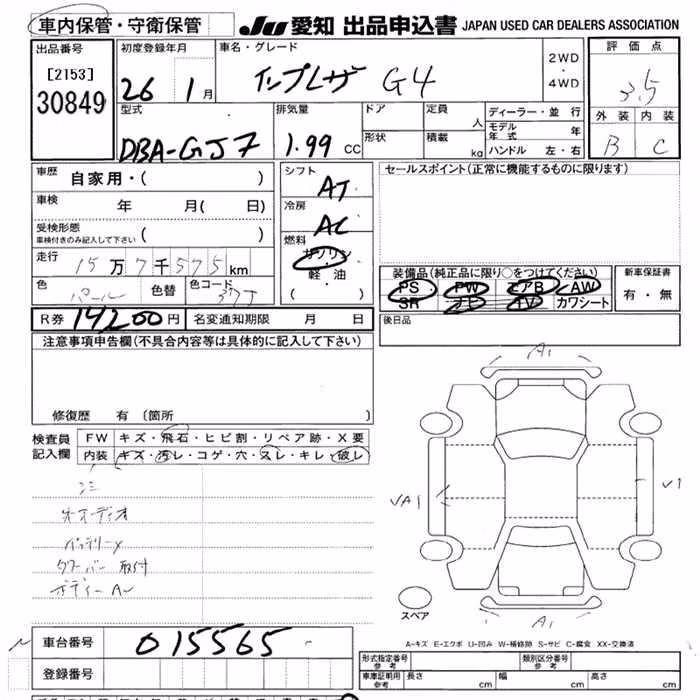 車内保管・守衛保管
JU 愛知 出品申込書 JAPAN USED CAR DEALERS ASSOCIATION
出品番号
[2153]
30849
初度登録年月
26 1月
車名・グレード
インプレッサ G4
2WD
・
4WD
評価点
3.5
外装 内装
B C
型式
DBA-GJ7
排気量
1.99 CC
ドア
形状
定員 人
積載 kg
ディーラー・並行
モデル年式 年
ハンドル 左・右
車歴 自家用・( )
車検 年 月( 日)
受検形態
車検付きのみ記入して下さい ( )
走行 15万7千575km
色 パール 色替 色コード 37J
シフト
AT
冷房
AC
燃料
ガソリン
軽・油
( )
セールスポイント(正常に機能するものに限ります)
装備品(純正品に限り○をつけてください)
PS PW エアB AW
SR ナビ TV カワシート
新車保証書
有・無
R券 14200円 名変通知期限 月 日
後日品
注意事項申告欄(不具合内容等は具体的に記入して下さい)
修復歴 有 (箇所 )
検査員記入欄
FW キズ・飛石・ヒビ割・リペア跡・X要
内装 キズ・汚レ・コゲ・穴・スレ・キレ・破レ
オーディオ
バッテリーメ
タワーバー 取付
A1
VA1
V1
A1
スペア
A-キズ E-エクボ U-凹み W-補修跡 S-サビ C-腐食 XX-交換済
車台番号 015565
登録番号
形式指定番号
参考
類別区分番号
参考
車庫証明用
参考
長さ cm
幅 cm
高さ cm